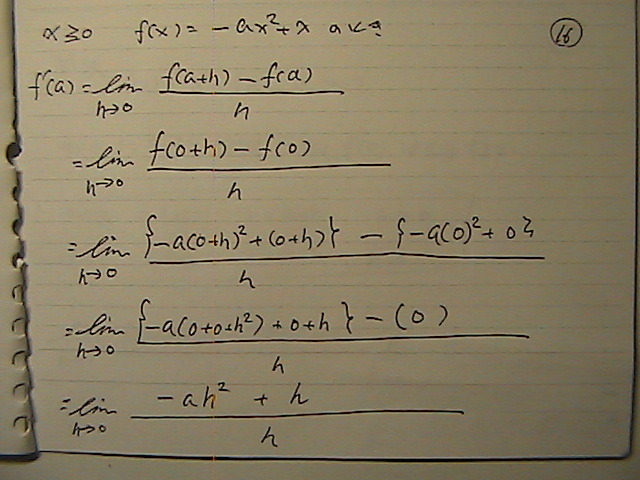 x≧0 f(x) = -ax²+x aのとき
⑯
f'(a) = lim h→0 f(a+h) - f(a) / h
= lim h→0 f(0+h) - f(0) / h
= lim h→0 {-a(0+h)²+(0+h)} - {-a(0)²+0} / h
= lim h→0 {-a(0+0+h²)+0+h} - (0) / h
= lim h→0 -ah² + h / h